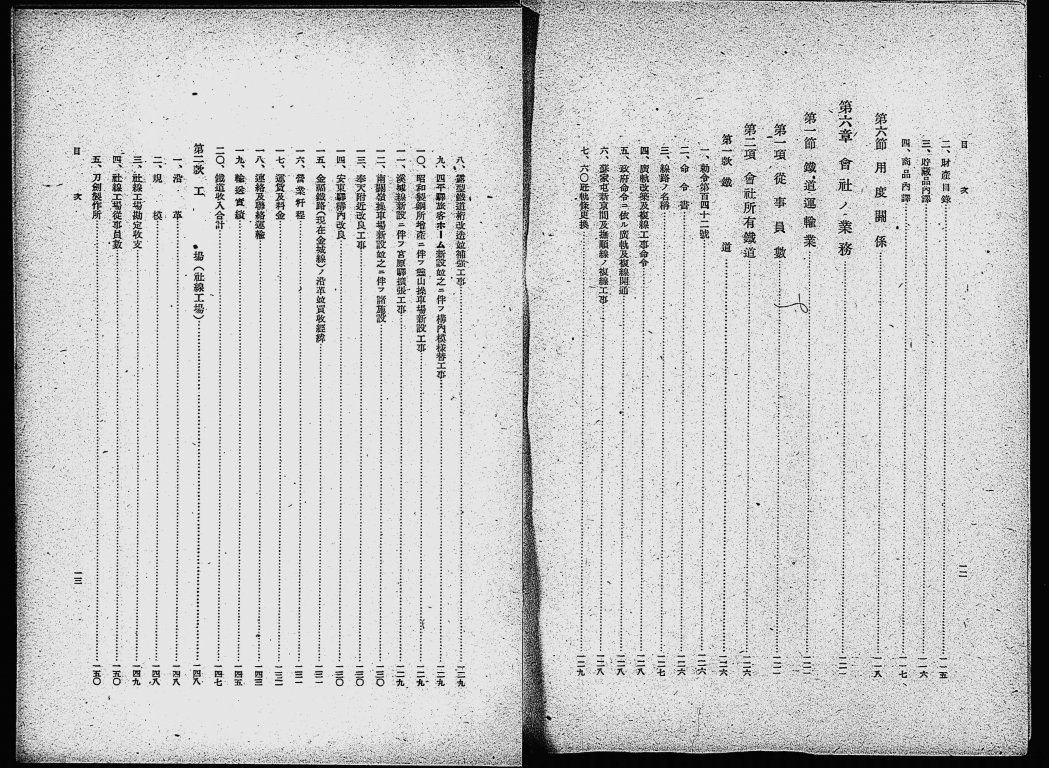 目次
一二
二、財産目錄……一一五
三、貯藏品內譯……一一六
四、商品內譯……一一七
第六節 用度關係……一一八
第六章 會社ノ業務……一二一
第一節 鐵道運輸業……一二一
第一項 從事員數……一二一
第二項 會社所有鐵道……一二六
第一款 鐵道……一二六
一、勅令第百四十二號……一二六
二、命令書……一二六
三、線路ノ名稱……一二七
四、廣軌改築及複線工事命令……一二八
五、政府命令ニ依ル廣軌及複線開通……一二八
六、蘇家屯新京間及撫順線ノ複線工事……一二八
七、六〇瓩軌條更換……一二九
八、露型鐵道橋改造竝補强工事……一二九
九、四平驛旅客ホーム新設竝之ニ伴フ構內模樣替工事……一二九
一〇、昭和製鋼所增產ニ伴フ靈山操車場新設工事……一二九
一一、溪城線新設ニ伴フ宮原驛擴張工事……一二九
一二、南關嶺操車場新設竝之ニ伴フ諸施設……一三〇
一三、奉天附近改良工事……一三〇
一四、安東驛構內改良……一三〇
一五、金福鐵路(現在金城線)ノ沿革竝買收經緯……一三一
一六、營業粁程……一三一
一七、運賃及料金……一三二
一八、連絡及聯絡運輸……一四三
一九、輸送實績……一四五
二〇、鐵道收入合計……一四七
第二款 工場(社線工場)……一四八
一、沿革……一四八
二、規模……一四八
三、社線工場勘定收支……一四九
四、社線工場從事員數……一五〇
五、刀劍製作所……一五〇
目次
一三